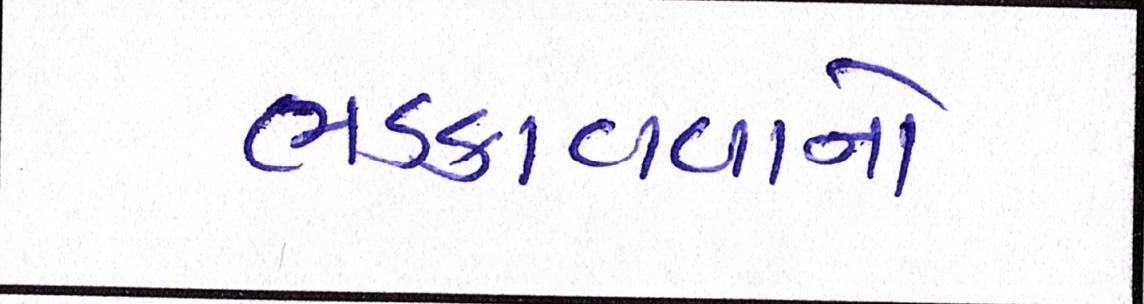 ભડકાવવાનો